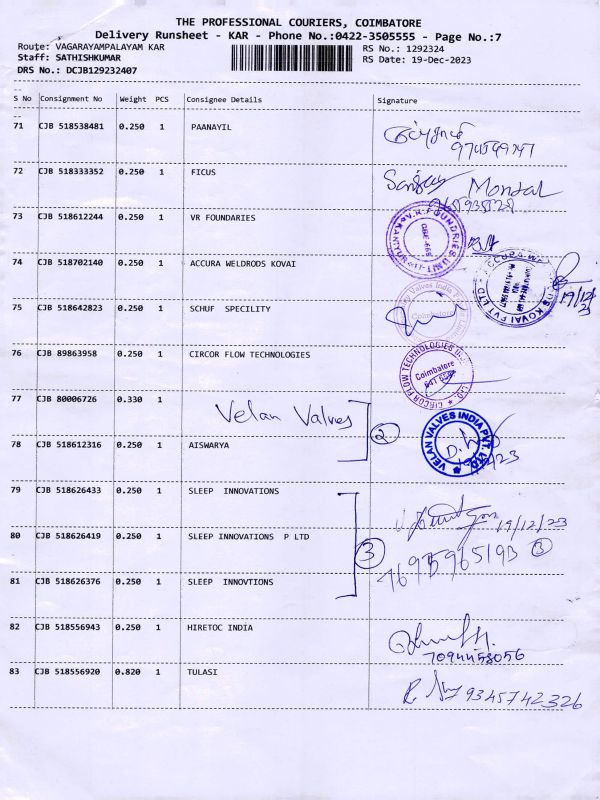 THE PROFESSIONAL COURIERS, COIMBATORE
Delivery Runsheet - KAR - Phone No.:0422-3505555 - Page No.:7
Route: VAGARAYAMPALAYAM KAR RS No.: 1292324
Staff: SATHISHKUMAR RS Date: 19-Dec-2023
DRS No.: DCJB129232407
S No Consignment No Weight PCS Consignee Details Signature
71 CJB 518538481 0.250 1 PAANAYIL
72 CJB 518333352 0.250 1 FICUS Mondal
73 CJB 518612244 0.250 1 VR FOUNDARIES
74 CJB 518702140 0.250 1 ACCURA WELDRODS KOVAI 19/12/23
75 CJB 518642823 0.250 1 SCHUF SPECILITY Coimbatore
76 CJB 89863958 0.250 1 CIRCOR FLOW TECHNOLOGIES CIRCOR FLOW TECHNOLOGIES Coimbatore
77 CJB 80006726 0.330 1 Velan Valves 2 VELAN VALVES INDIA PVT. LTD
78 CJB 518612316 0.250 1 AISWARYA
79 CJB 518626433 0.250 1 SLEEP INNOVATIONS 19/12/23
80 CJB 518626419 0.250 1 SLEEP INNOVATIONS P LTD 3 3
81 CJB 518626376 0.250 1 SLEEP INNOVTIONS
82 CJB 518556943 0.250 1 HIRETOC INDIA
83 CJB 518556920 0.820 1 TULASI 9345742326